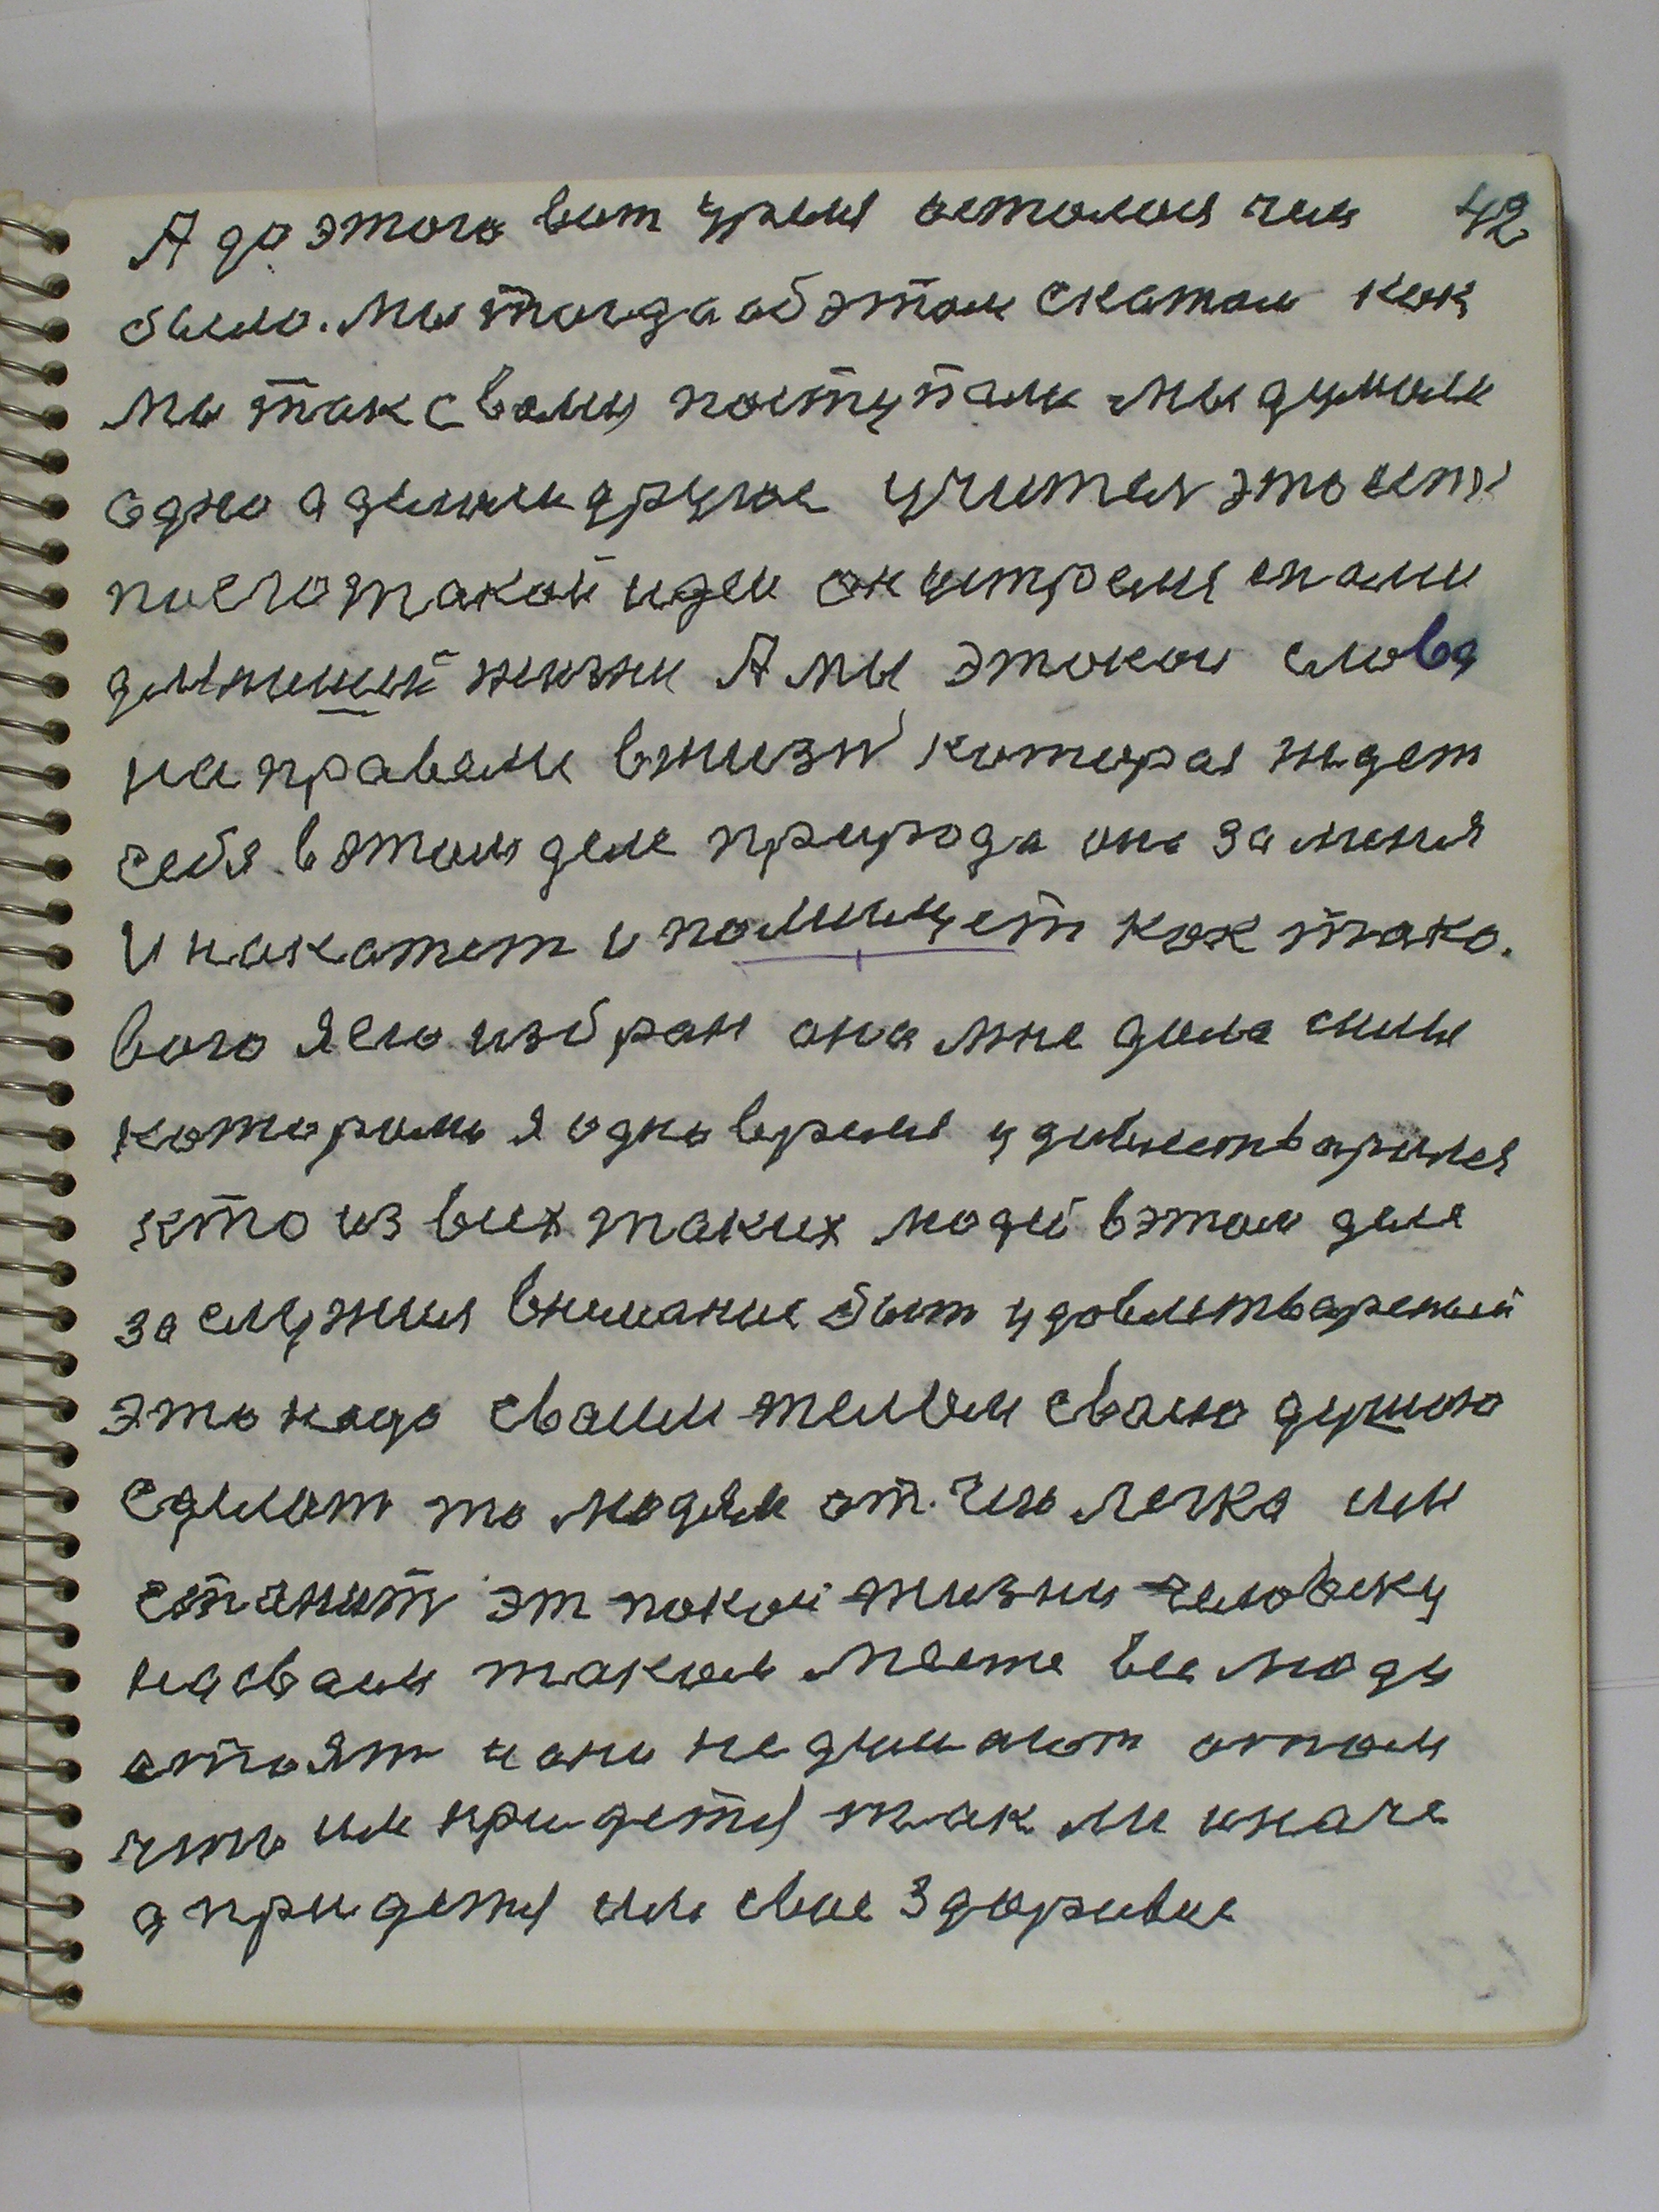 42
А до этого вот время осталося чем
было. Мы тогда об этом скатом как
мы так с вами поступали мы думали
одно а делали другое учителя это ест
посготакой идеи он устремя снами
далнишей жизни А мы этокои слова
направели вжизн которая ждет
себя в этом деле природа она за меня
И накатет и помищет как тако.
вого я его избран она мне дала силы
которым я одно время удовлетварился
кто из вих таких людей в этом деле
заслужил внимание быт удовлетвареный
это надо своим телом своею душою
сделат то людям от чего легка им
станит эт покои жизни человеку
на своем таком месте все люди
стоят и они не думают отом
что им придется так ли иначе
а придется им свое здоровие